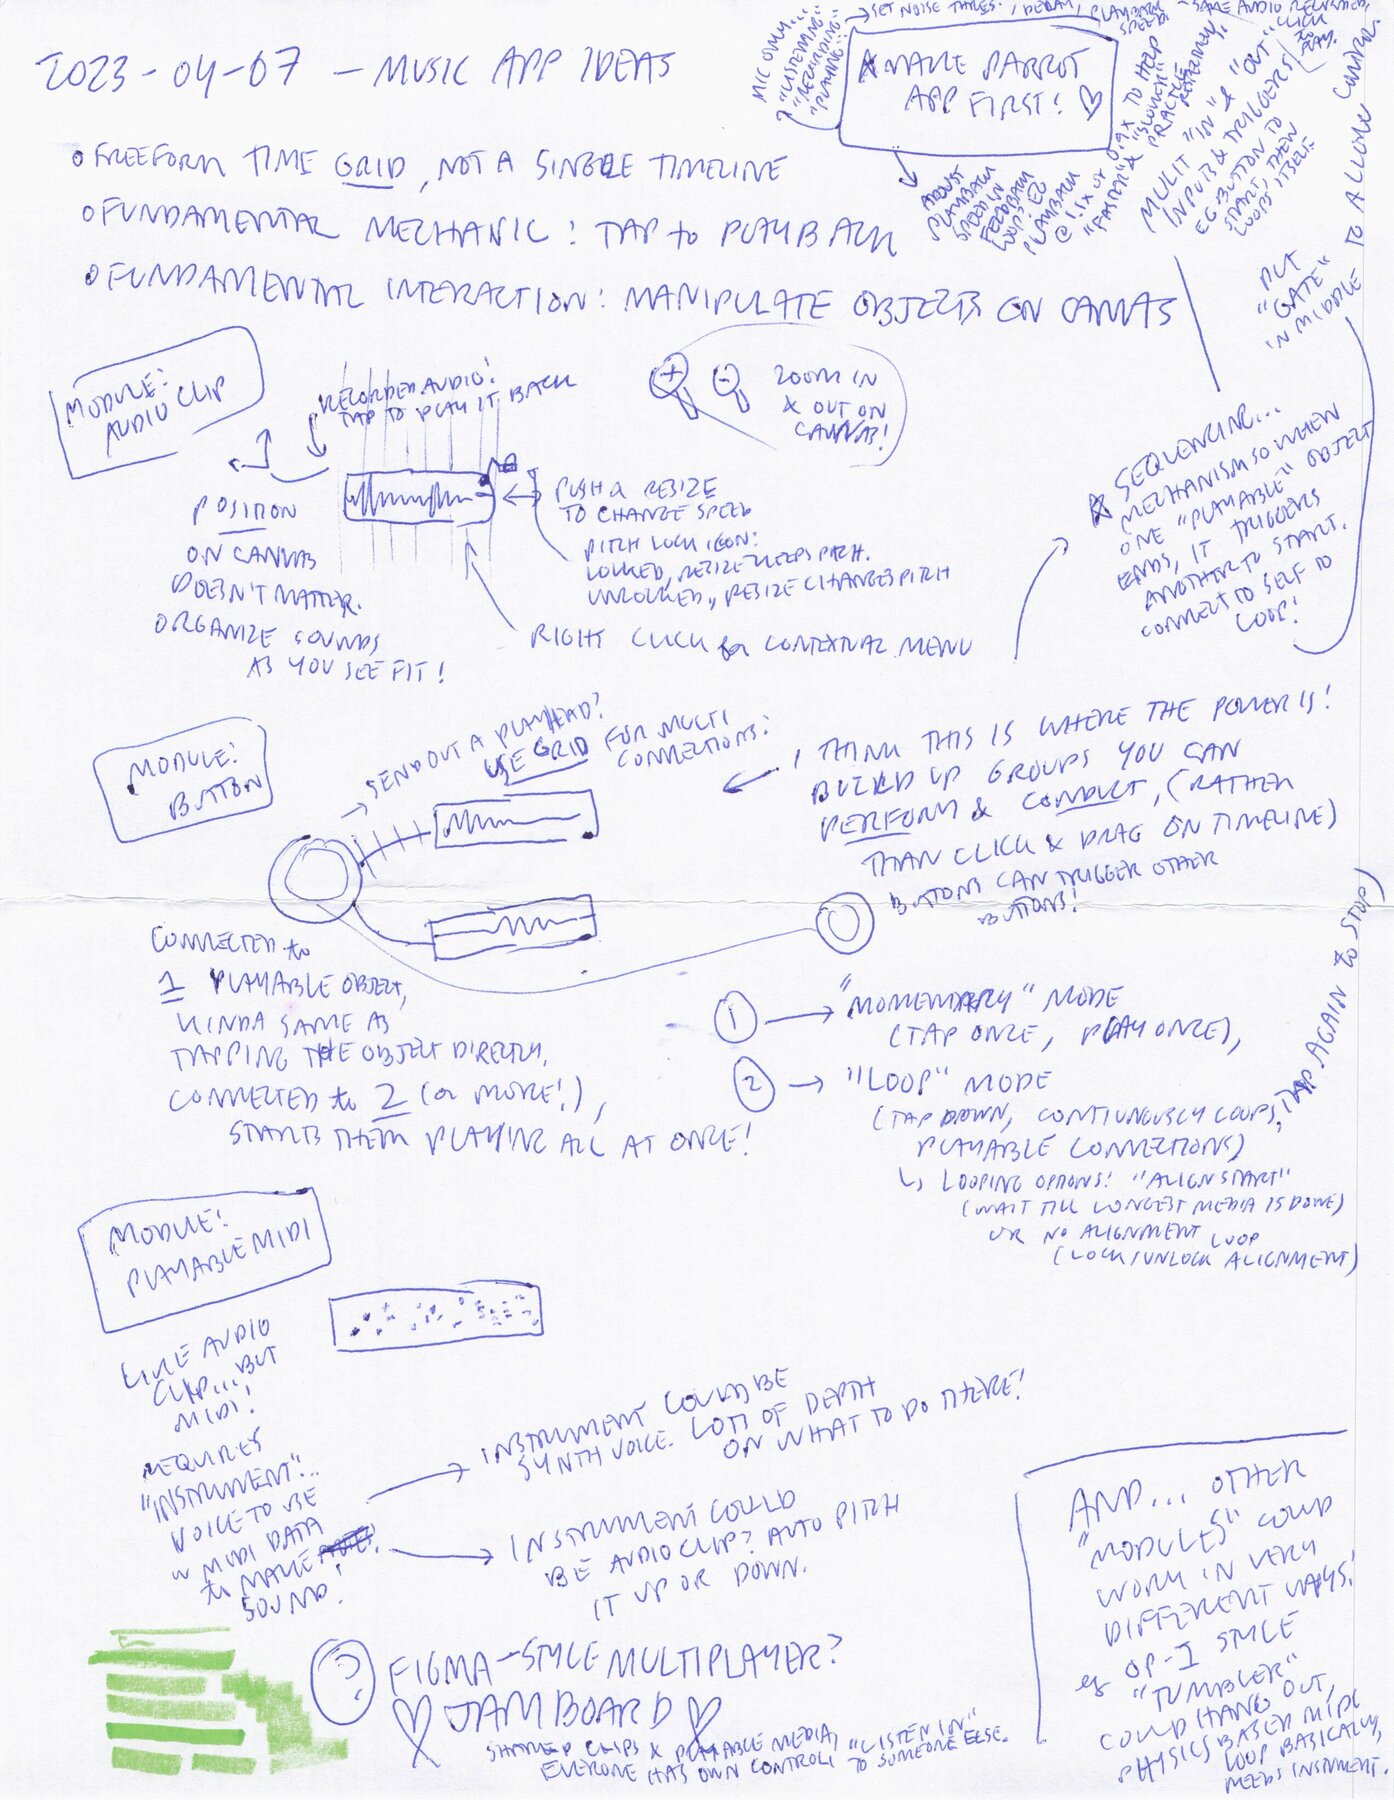 2023-04-07 — MUSIC APP IDEAS
MIC ONLY...
"LISTENING"
"RECORDING"
"PLAYING"
→ SET NOISE THRES., DELAY, PLAYBACK
SPEED.
SAME AUDIO
CLICK
TO
PLAY.
MAKE PARROT
APP FIRST!
ADJUST
PLAYBACK
SPEED IN
FEEDBACK
LOOP? EG
PLAYBACK
@ 1.1X OR 0.9X TO HELP
"FASTER" & "SLOWER"
PRACTICE
MULTI "IN" & "OUT"
INPUTS & TRIGGERS
EG. BUTTON TO
START, THEN
LOOPS ITSELF.
PUT
"GATE"
IN MIDDLE TO ALLOW CONTROL.
• FREEFORM TIME GRID, NOT A SINGLE TIMELINE
• FUNDAMENTAL MECHANIC: TAP to PLAYBACK
• FUNDAMENTAL INTERACTION: MANIPULATE OBJECTS ON CANVAS
MODULE:
AUDIO CLIP
RECORDED AUDIO!
TAP TO PLAY IT BACK
+
-
ZOOM IN
& OUT ON
CANVAS!
POSITION
ON CANVAS
DOESN'T MATTER.
ORGANIZE SOUNDS
AS YOU SEE FIT!
PUSH & RESIZE
TO CHANGE SPEED
PITCH LOCK ICON:
LOCKED, RESIZE KEEPS PITCH.
UNLOCKED, RESIZE CHANGES PITCH
RIGHT CLICK for CONTEXTUAL MENU
SEQUENCING...
MECHANISM SO WHEN
ONE "PLAYABLE" OBJECT
ENDS, IT TRIGGERS
ANOTHER TO START.
CONNECT TO SELF TO
LOOP!
MODULE:
BUTTON
→ SEND OUT A PLAYHEAD?
USE GRID FOR MULTI
CONNECTIONS!
I THINK THIS IS WHERE THE POWER IS!
BUILD UP GROUPS YOU CAN
PERFORM & CONDUCT, (RATHER
THAN CLICK & DRAG ON TIMELINE)
BUTTONS CAN TRIGGER OTHER
BUTTONS!
CONNECTED to
1 PLAYABLE OBJECT,
KINDA SAME AS
TAPPING THE OBJECT DIRECTLY.
CONNECTED to 2 (OR MORE!),
STARTS THEM PLAYING ALL AT ONCE!
1 → "MOMENTARY" MODE
(TAP ONCE, PLAY ONCE),
2 → "LOOP" MODE
(TAP DOWN, CONTIUNOUSLY LOOPS,
PLAYABLE CONNECTIONS)
(TAP AGAIN to STOP)
↳ LOOPING OPTIONS! "ALIGN START"
(WAIT TILL LONGEST MEDIA IS DONE)
OR NO ALIGNMENT LOOP
(LOCK/UNLOCK ALIGNMENT)
MODULE:
PLAYABLE MIDI
LIKE AUDIO
CLIP... BUT
MIDI!
REQUIRES
"INSTRUMENT"...
VOICE TO USE
w MIDI DATA
to MAKE
SOUND!
INSTRUMENT COULD BE
SYNTH VOICE. LOTS OF DEPTH
ON WHAT TO DO THERE!
INSTRUMENT COULD
BE AUDIO CLIP? AUTO PITCH
IT UP OR DOWN.
AND... OTHER
"MODULES" COULD
WORK IN VERY
DIFFERENT WAYS!
eg OP-1 STYLE
"TUMBLER"
COULD HANG OUT,
PHYSICS BASED MIDI
LOOP BASICALLY,
NEEDS INSTRUMENT.
? FIGMA-STYLE MULTIPLAYER?
♡ JAMBOARD ♡
SHARED CLIPS & PLAYABLE MEDIA,
EVERYONE HAS OWN CONTROL, "LISTEN IN"
TO SOMEONE ELSE.